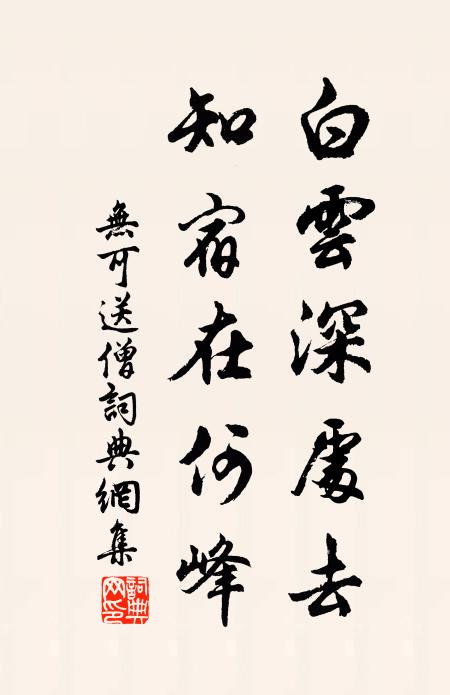 白雲深處去
知宿在何峰
無可送僧詞典網集
詞典
網印